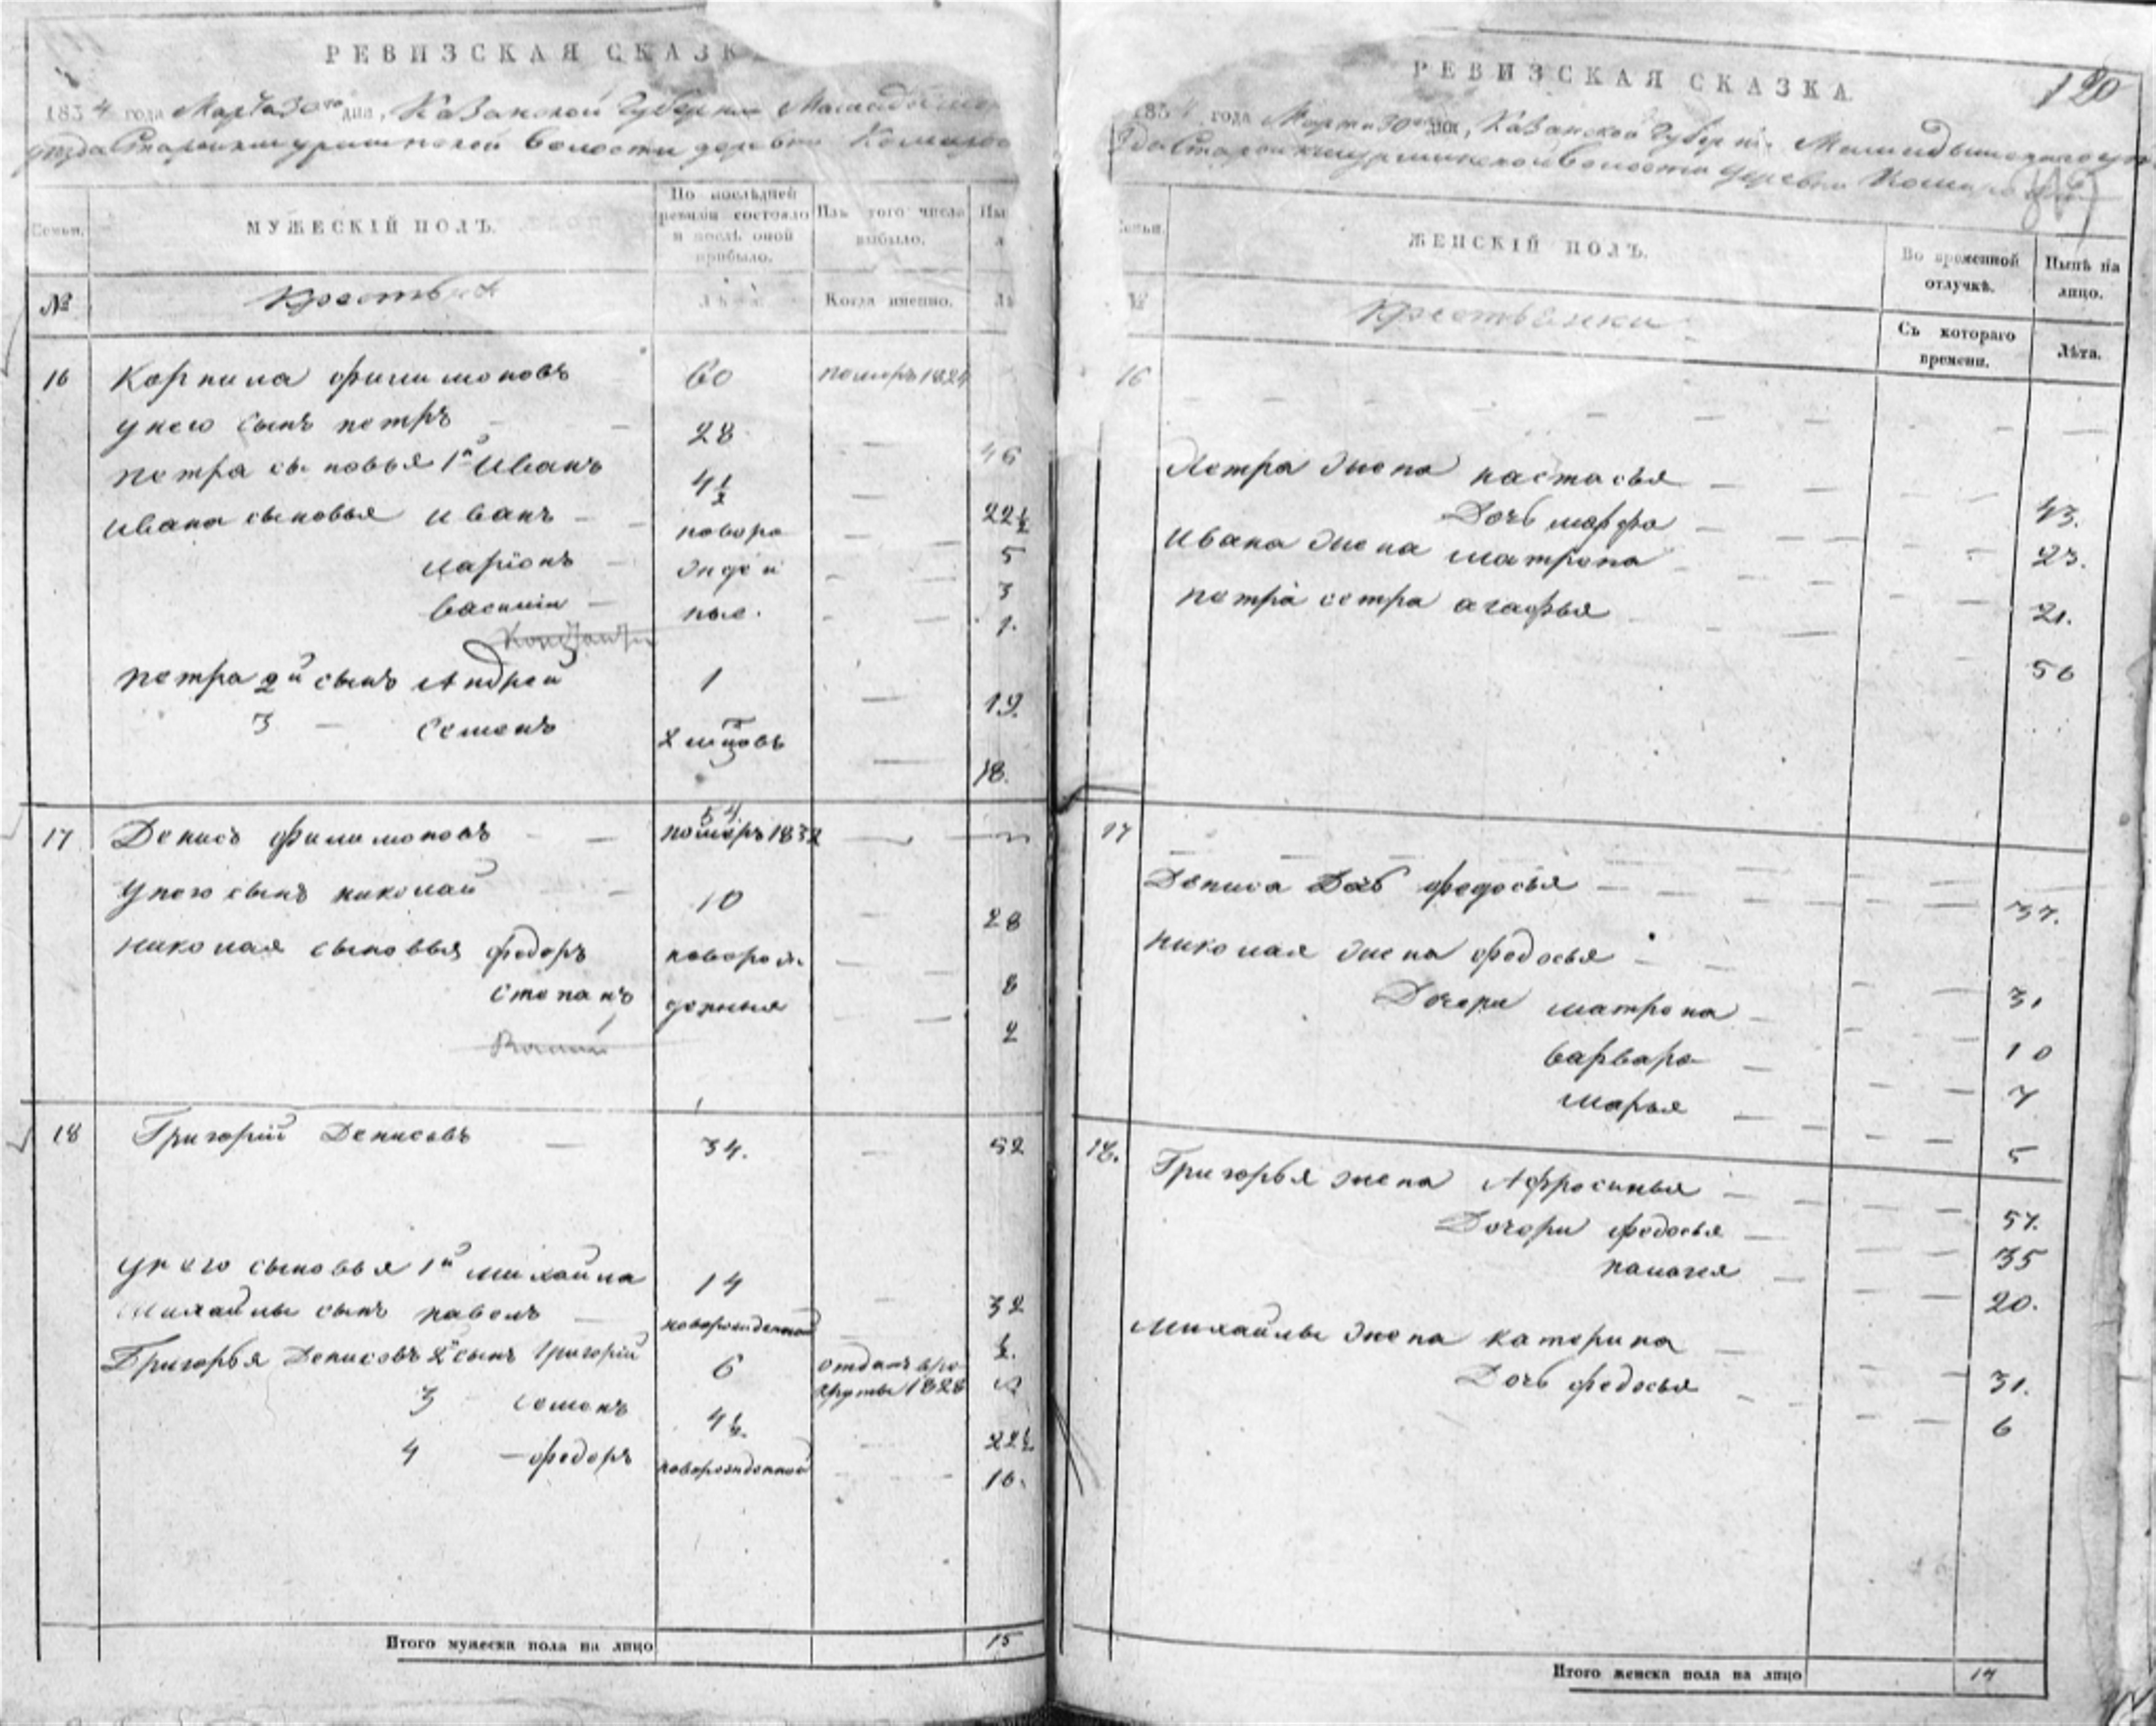 РЕВИЗСКАЯ СКАЗК
1834 года Марта 30го дня, Казанской Губернии
уезда волости деревни
Семьи.
МУЖЕСКІЙ ПОЛЪ.
По послѣдней ревизіи состояло и послѣ оной прибыло.
Изъ того числа выбыло.
Ны
№
Крестьяне
Лѣта.
Когда именно.
Лѣ
16 Корнила филимоновъ 60 померъ 1824
у него сынъ петръ — 28 — 46
петра сыновья 1й Иванъ 4½ — 22½
Ивана сыновья иванъ — новоро — 5
ларіонъ — жден — 3
василіи — ные. - 1.
Константин
петра 2й сынъ Андрей 1 — 19.
3 — Семенъ 2 мцовъ — 18.
17 Денисъ филимоновъ — 54. померъ 1832 — —
У него сынъ николай — 10 — 28
николая сыновья федоръ новорож — 8
степанъ денныя — 2
18 Григорій Денисовъ — 34. — 52
у него сыновья 1й михайла 14 — 32
Михайлы сынъ павелъ — новорожденной — ½.
Григорья Денисовъ 2й сынъ Григорій 6 отданъ вре
круты 1828
3 семенъ 4½. — 22½
4 — федоръ новорожденной — 16.
Итого мужеска пола на лицо 15
РЕВИЗСКАЯ СКАЗКА
120
1834 года Марта 30го дня, Казанской Губерніи
волости деревни
Семьи.
ЖЕНСКІЙ ПОЛЪ.
Во временной отлучкѣ.
Нынѣ на лицо.
№
Крестьянки
Съ котораго времени.
Лѣта.
16
Петра жена настасья — 43.
Дочь марфа — 23.
Ивана жена матрона — 21.
петра сетра агафья — 56
17
Дениса Дочь федосья — 37.
николая жена федосья — 31
Дочери матрона — 10
варвара — 7
марья — 5
18. Григорья жена Афросинья — 57.
Дочери федосья — 35
палагея — 20.
Михайлы жена катерина — 31.
Дочь федосья — 6
Итого женска пола на лицо 14